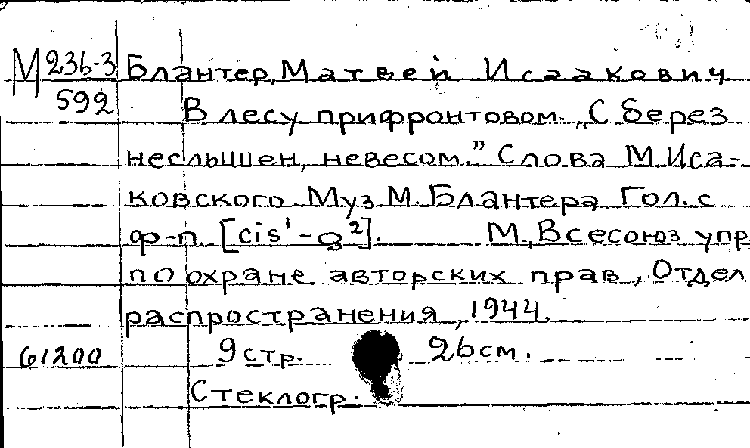 М 236-3 Блантер, Матвей Исаакович
592 В лесу прифронтовом. „С берез
неслышен, невесом." Слова М. Иса-
ковского. Муз. М. Блантера. Гол. с
ф-п. [cis¹-g²]. М., Всесоюз. упр
по охране авторских прав, Отдел
распространения, 1944.
61200 9 стр. 26 см.
Стеклогр.